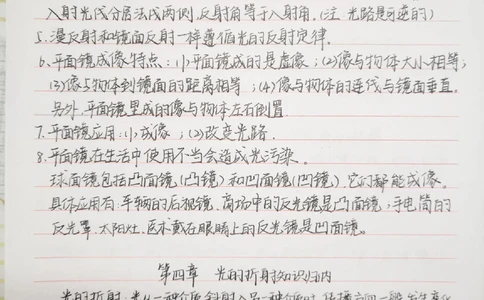 入射光线分居法线两侧,反射角等于入射角.(注:光路是可逆的)
5.漫反射和镜面反射一样遵循光的反射定律.
6.平面镜成像特点:(1)平面镜成的是虚像;(2)像与物体大小相等;
(3)像与物体到镜面的距离相等;(4)像与物体的连线与镜面垂直.
另外,平面镜里成的像与物体左右倒置.
7.平面镜应用:(1)成像;(2)改变光路.
8.平面镜在生活中使用不当会造成光污染.
球面镜包括凸面镜(凸镜)和凹面镜(凹镜).它们都能成像.
具体应用有:车辆的后视镜、商场中的反光镜是凸面镜;手电筒的
反光罩、太阳灶、医术戴在眼睛上的反光镜是凹面镜.
第四章 光的折射知识归纳
光的折射:光从一种介质斜射入另一种介质时,传播方向一般发生变化